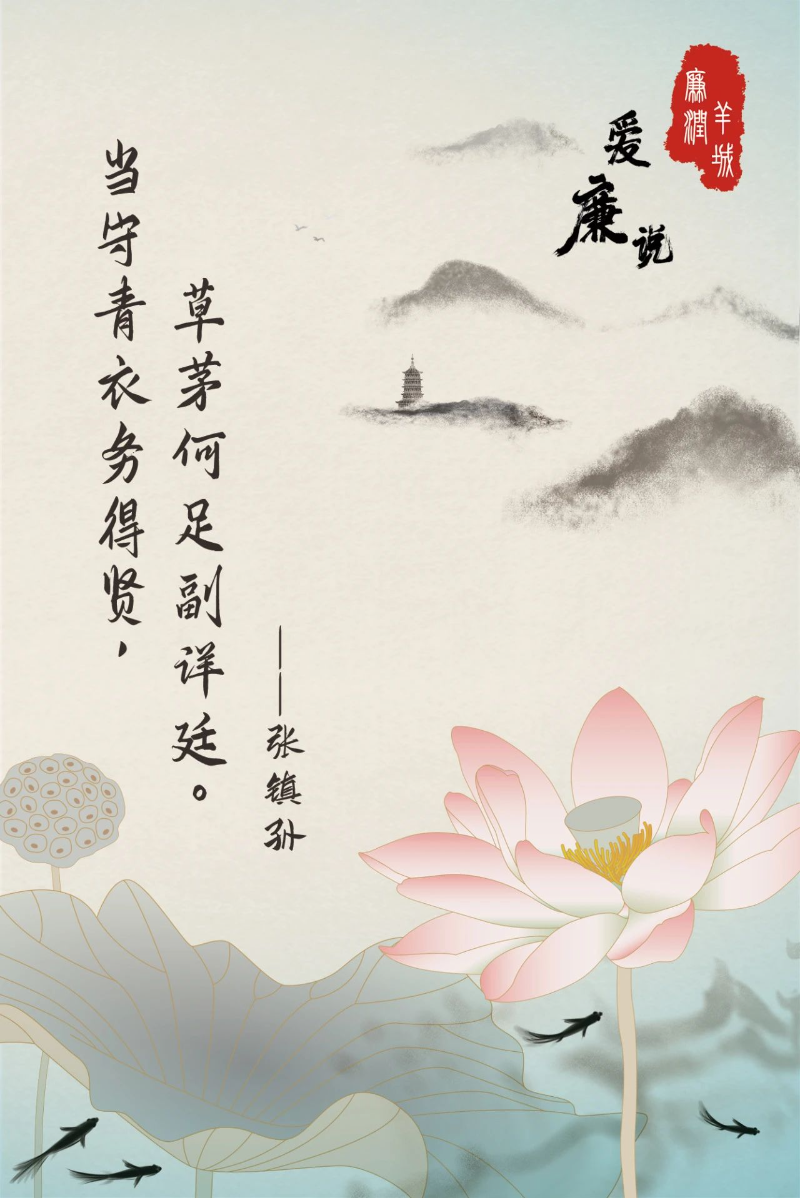 廉润
羊城
爱廉说
当守青衣务得贤，
草茅何足副详廷。
——张镇孙